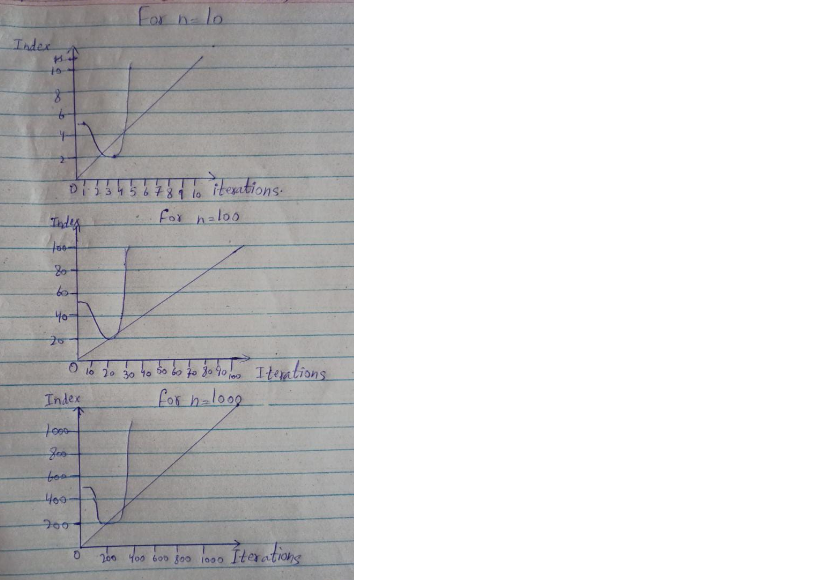 For n=10
Index
10
8
6
4
2
0 1 2 3 4 5 6 7 8 9 10 iterations.
For n=100
Index
100
80
60
40
20
0 10 20 30 40 50 60 70 80 90 100 Iterations
For n=1000
Index
1000
800
600
400
200
0 200 400 600 800 1000 Iterations